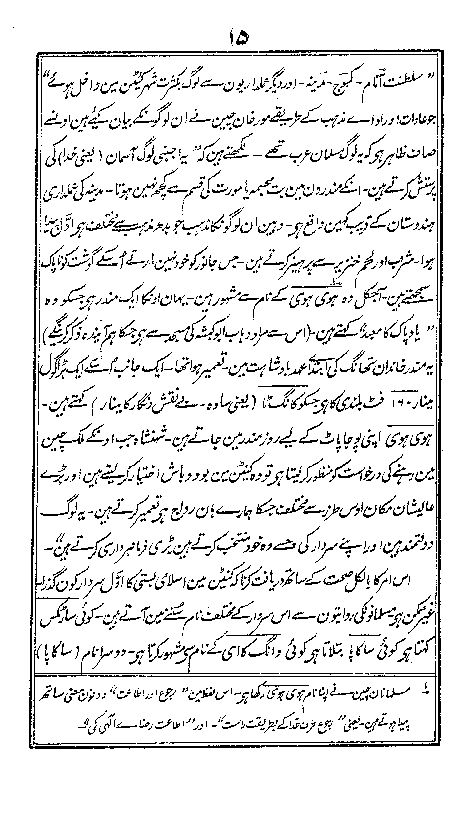 ۱۵
"سلطنت آنام - کمبوج - مدینہ - اور دیگر عملداریون سے لوگ بکثرت شہر کینٹن مین داخل ہوئے"
جو عادات اور اداے مذہب کے طریقے مورخان چین نے ان لوگونکے بیان کیئے ہین اونسے
صاف ظاہر ہوکہ یہ لوگ مسلمان عرب تھے - لکھتے ہین کہ "یہ اجنبی لوگ آسمان (یعنی خدا) کی
پرستش کرتے ہین - انکے مندرون مین بت مجسمہ یا مورت کی قسم سے کچھ نہین ہوتا - مدینہ کی عملداری
ہندوستان کے قریب کہین واقع ہو - وہین ان لوگونکا مذہب جو بدھ مذہب سے مختلف ہو اوّل پیدا
ہوا - شراب اور لحم خنزیر سے پرہیز کرتے ہین - جس جانور کو خود نہین مارتے اُسکے گوشت کو ناپاک
سمجھتے ہین - آجکل وہ ہوی ہوی کے نام سے مشہور ہین - یہان اونکا ایک مندر ہو جسکو وہ
"یاد پاک کا معبد" کہتے ہین - (اس سے مراد وہاب ابو کبشہ کی مسجد سے ہی جسکا ہم آیندہ ذکر کرینگے)
یہ مندر خاندان تھانگ کی ابتداے عہد بادشاہت مین تعمیر ہوا تھا - ایک جانب اُسکے ایک بڑا گول
مینار ۱۶۰ فٹ بلندی کا ہو جسکو کانگ ٹا (یعنی سادہ - بے نقش و نگار کا مینار) کہتے ہین -
ہوی ہوی اپنی پوجا پاٹ کے لیے روز مندر مین جاتے ہین - شہنشاہ جب اونکے ملک چین
مین رہنے کی درخواست کو منظور کر لیتا ہو تو وہ کینٹن مین بود و باش اختیار کر لیتے ہین اور بڑے
عالیشان مکان اوس طرز سے مختلف جسکا ہمارے ہان رواج ہو تعمیر کرتے ہین - یہ لوگ
دولتمند ہین اور اپنے سردار کی جسے وہ خود منتخب کرتے ہین بڑی فرمانبرداری کرتے ہین"
اس امر کا بالکل صحت کے ساتھ دریافت کرنا کہ کینٹن مین اسلامی بستی کا اوّل سردار کون گذرا
غیر ممکن ہو مسلمانونکی روایتون سے اس سردار کے مختلف نام سننے مین آتے ہین - کوئی ساؤکس
کہتا ہو کوئی ساکاپا بتلاتا ہو کوئی وانگ کاای کے نام سے مشہور کرتا ہو - دوسرا نام (ساکاپا)
۱ مسلمانان چین نے اپنا نام ہوی ہوی رکھا ہو - اس لفظ مین "رجوع اور اطاعت" دونو معنی ساتھ
پیدا ہوتے ہین - یعنی "رجوع طرف خدا کے بطریقت راست" - اور "اطاعت رضاے الٰہی کی"